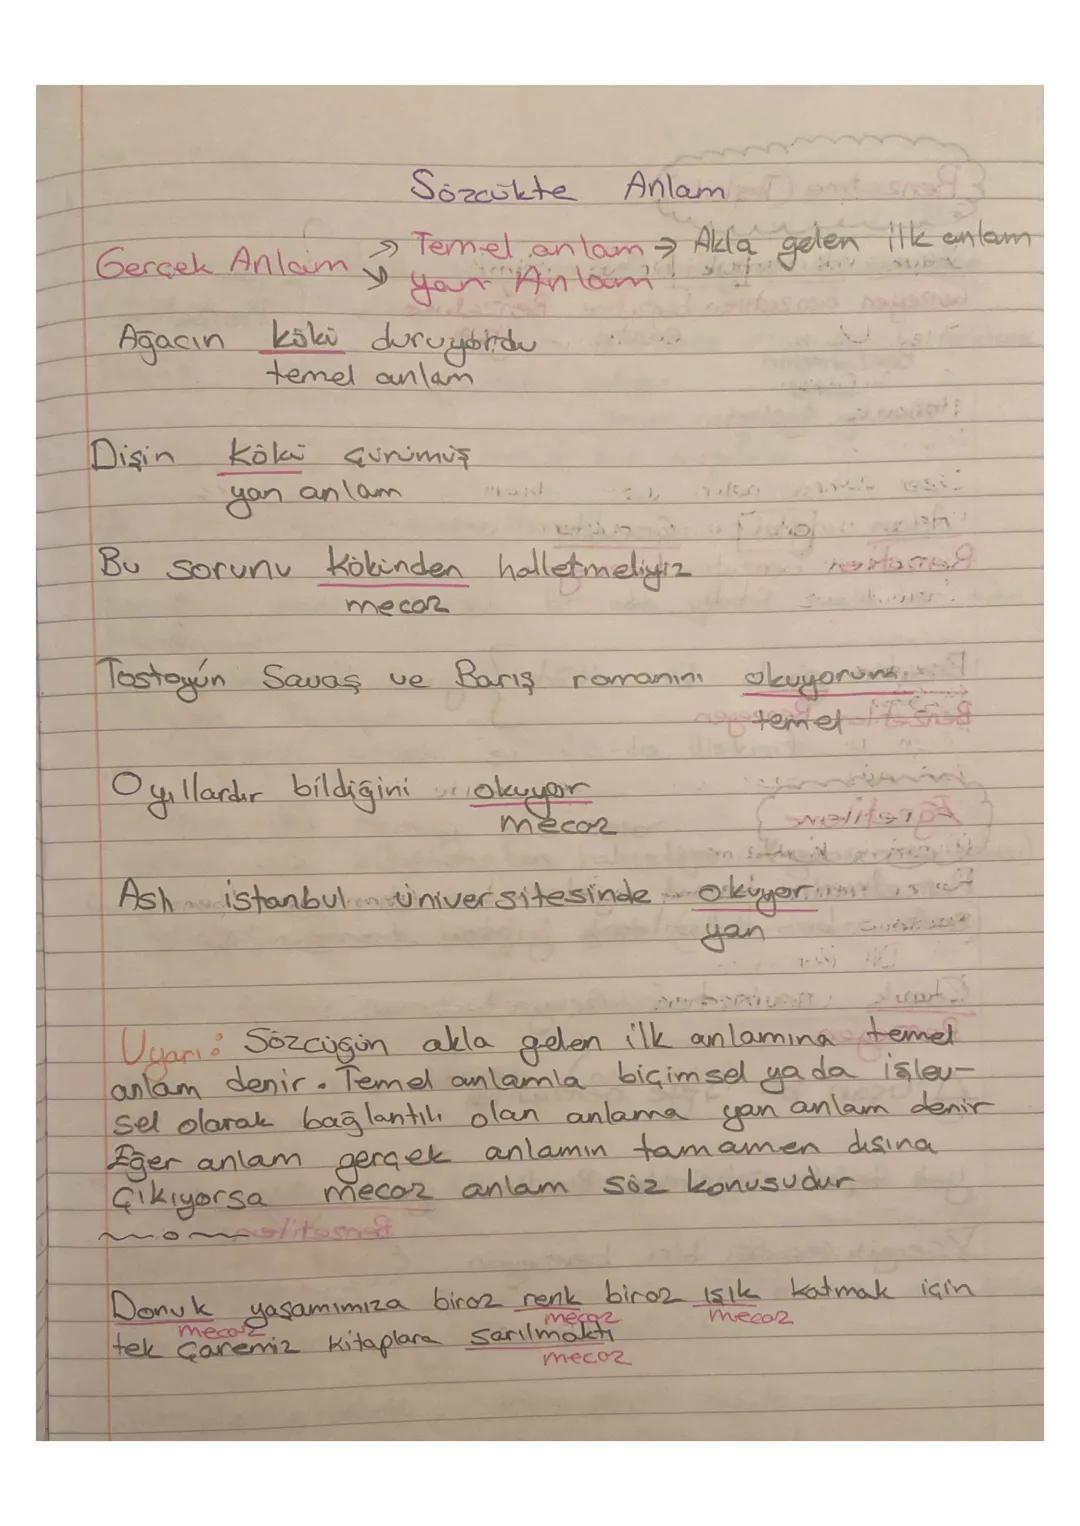 Sözcükte Anlam
Gerçek Anlam → Temel anlam → Akla gelen ilk anlam
→ yan Anlam
Ağacın kökü duruyordu
temel anlam
Dişin kökü çürümüş
yan anlam
Bu sorunu kökünden halletmeliyiz
mecaz
Tostoyún Savaş ve Barış romanını okuyorum
temel
O yıllardır bildiğini okuyor
mecaz
Aslı istanbul üniversitesinde okuyor
yan
Uyarı: Sözcüğün akla gelen ilk anlamına temel
anlam denir. Temel anlamla biçimsel yada işlev-
sel olarak bağlantılı olan anlama yan anlam denir
Eğer anlam gerçek anlamın tamamen dışına
çıkıyorsa mecaz anlam söz konusudur
Donuk yaşamımıza biraz renk biraz ışık katmak için
mecaz mecaz mecaz
tek çaremiz kitaplara sarılmaktı
mecaz